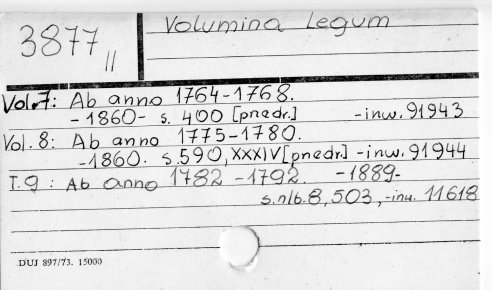 3877 II
Volumina Legum
Vol. 7: Ab anno 1764-1768.
-1860- s. 400 [przedr.] -inw. 91943
Vol. 8: Ab anno 1775-1780.
-1860. s. 590, XXXIV [przedr.] -inw. 91944
T. 9: Ab anno 1782-1792. -1889-
s. nlb. 8, 503, -inw. 11618
DUJ 897/73. 15000